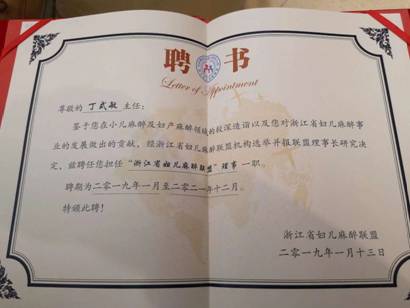 聘书
Letter of Appointment
尊敬的 丁武敏 主任：
鉴于您在小儿麻醉及妇产麻醉领域的较深造诣以及您对浙江省妇儿麻醉事
业的发展做出的贡献，经浙江省妇儿麻醉联盟机构选举并报联盟理事长研究决
定，兹聘任您担任“浙江省妇儿麻醉联盟”理事 一职，
聘期为二〇一九年一月至二〇二一年十二月。
特颁此聘！
浙江省妇儿麻醉联盟
二〇一九年一月十三日